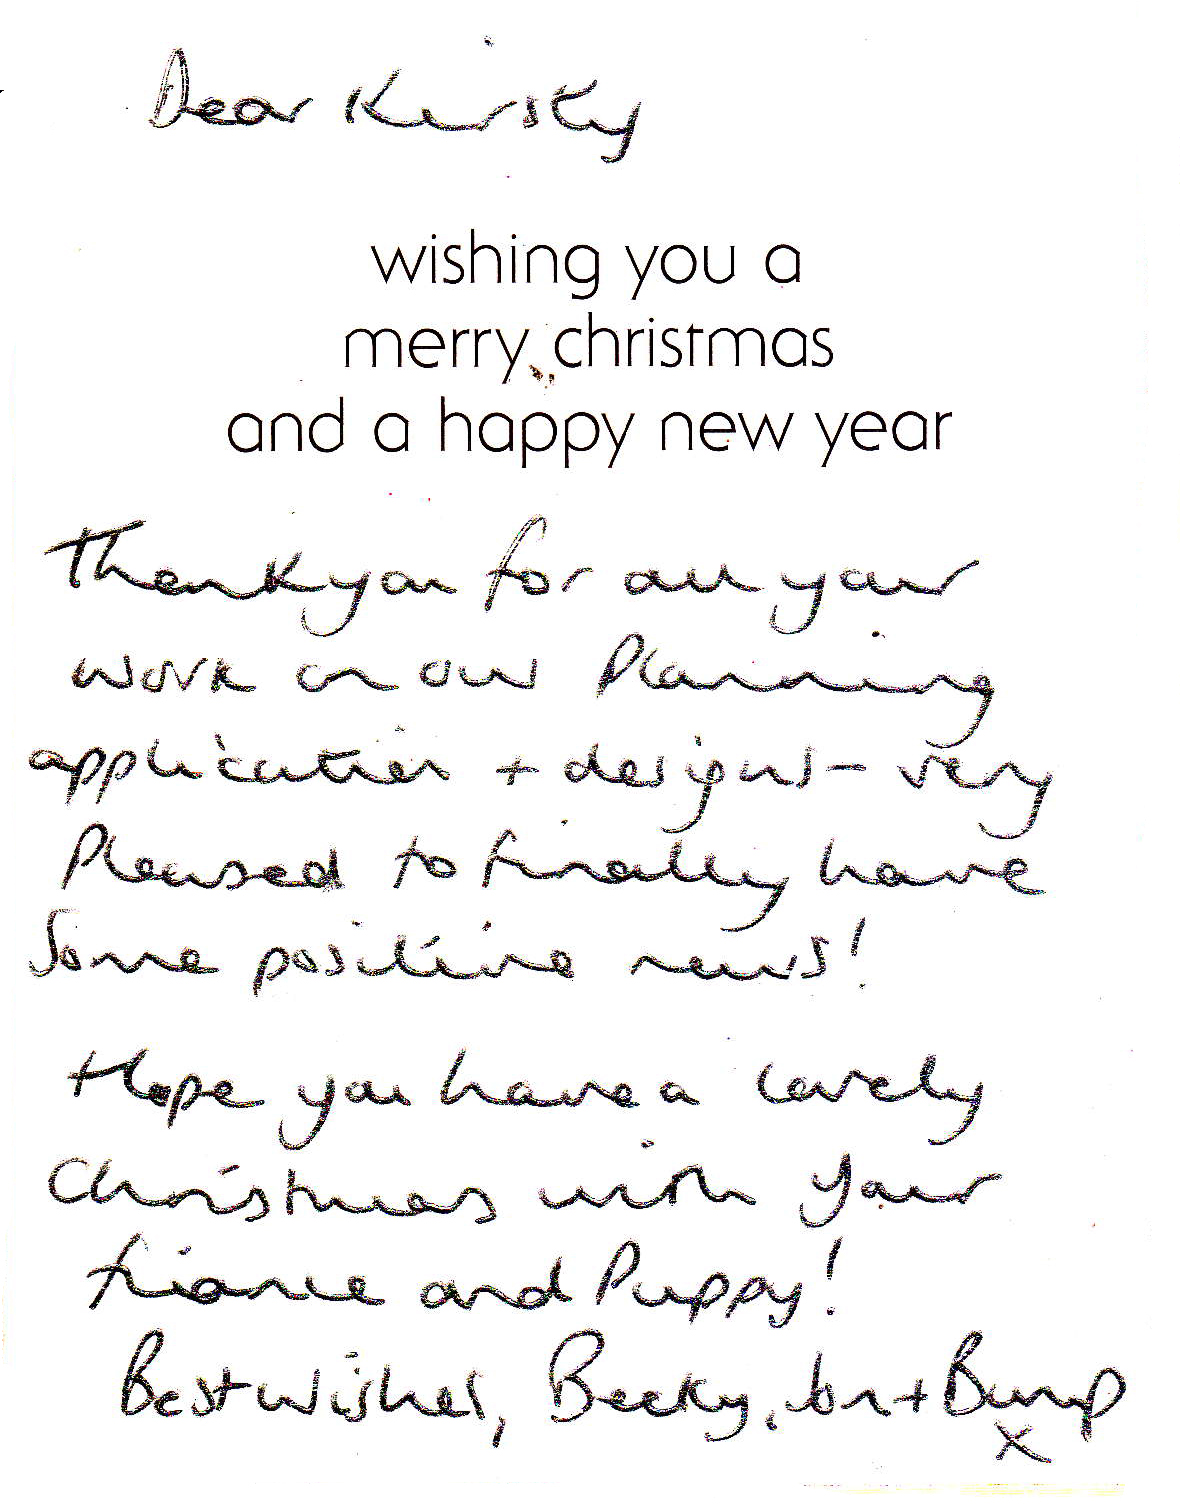 Dear Kirsty
wishing you a
merry christmas
and a happy new year
Thankyou for all your
work on our Planning
application + designs - very
Pleased to finally have
Some positive news!
Hope you have a lovely
Christmas with your
fiance and Puppy!
Best wishes, Becky, Jon + Bump
x